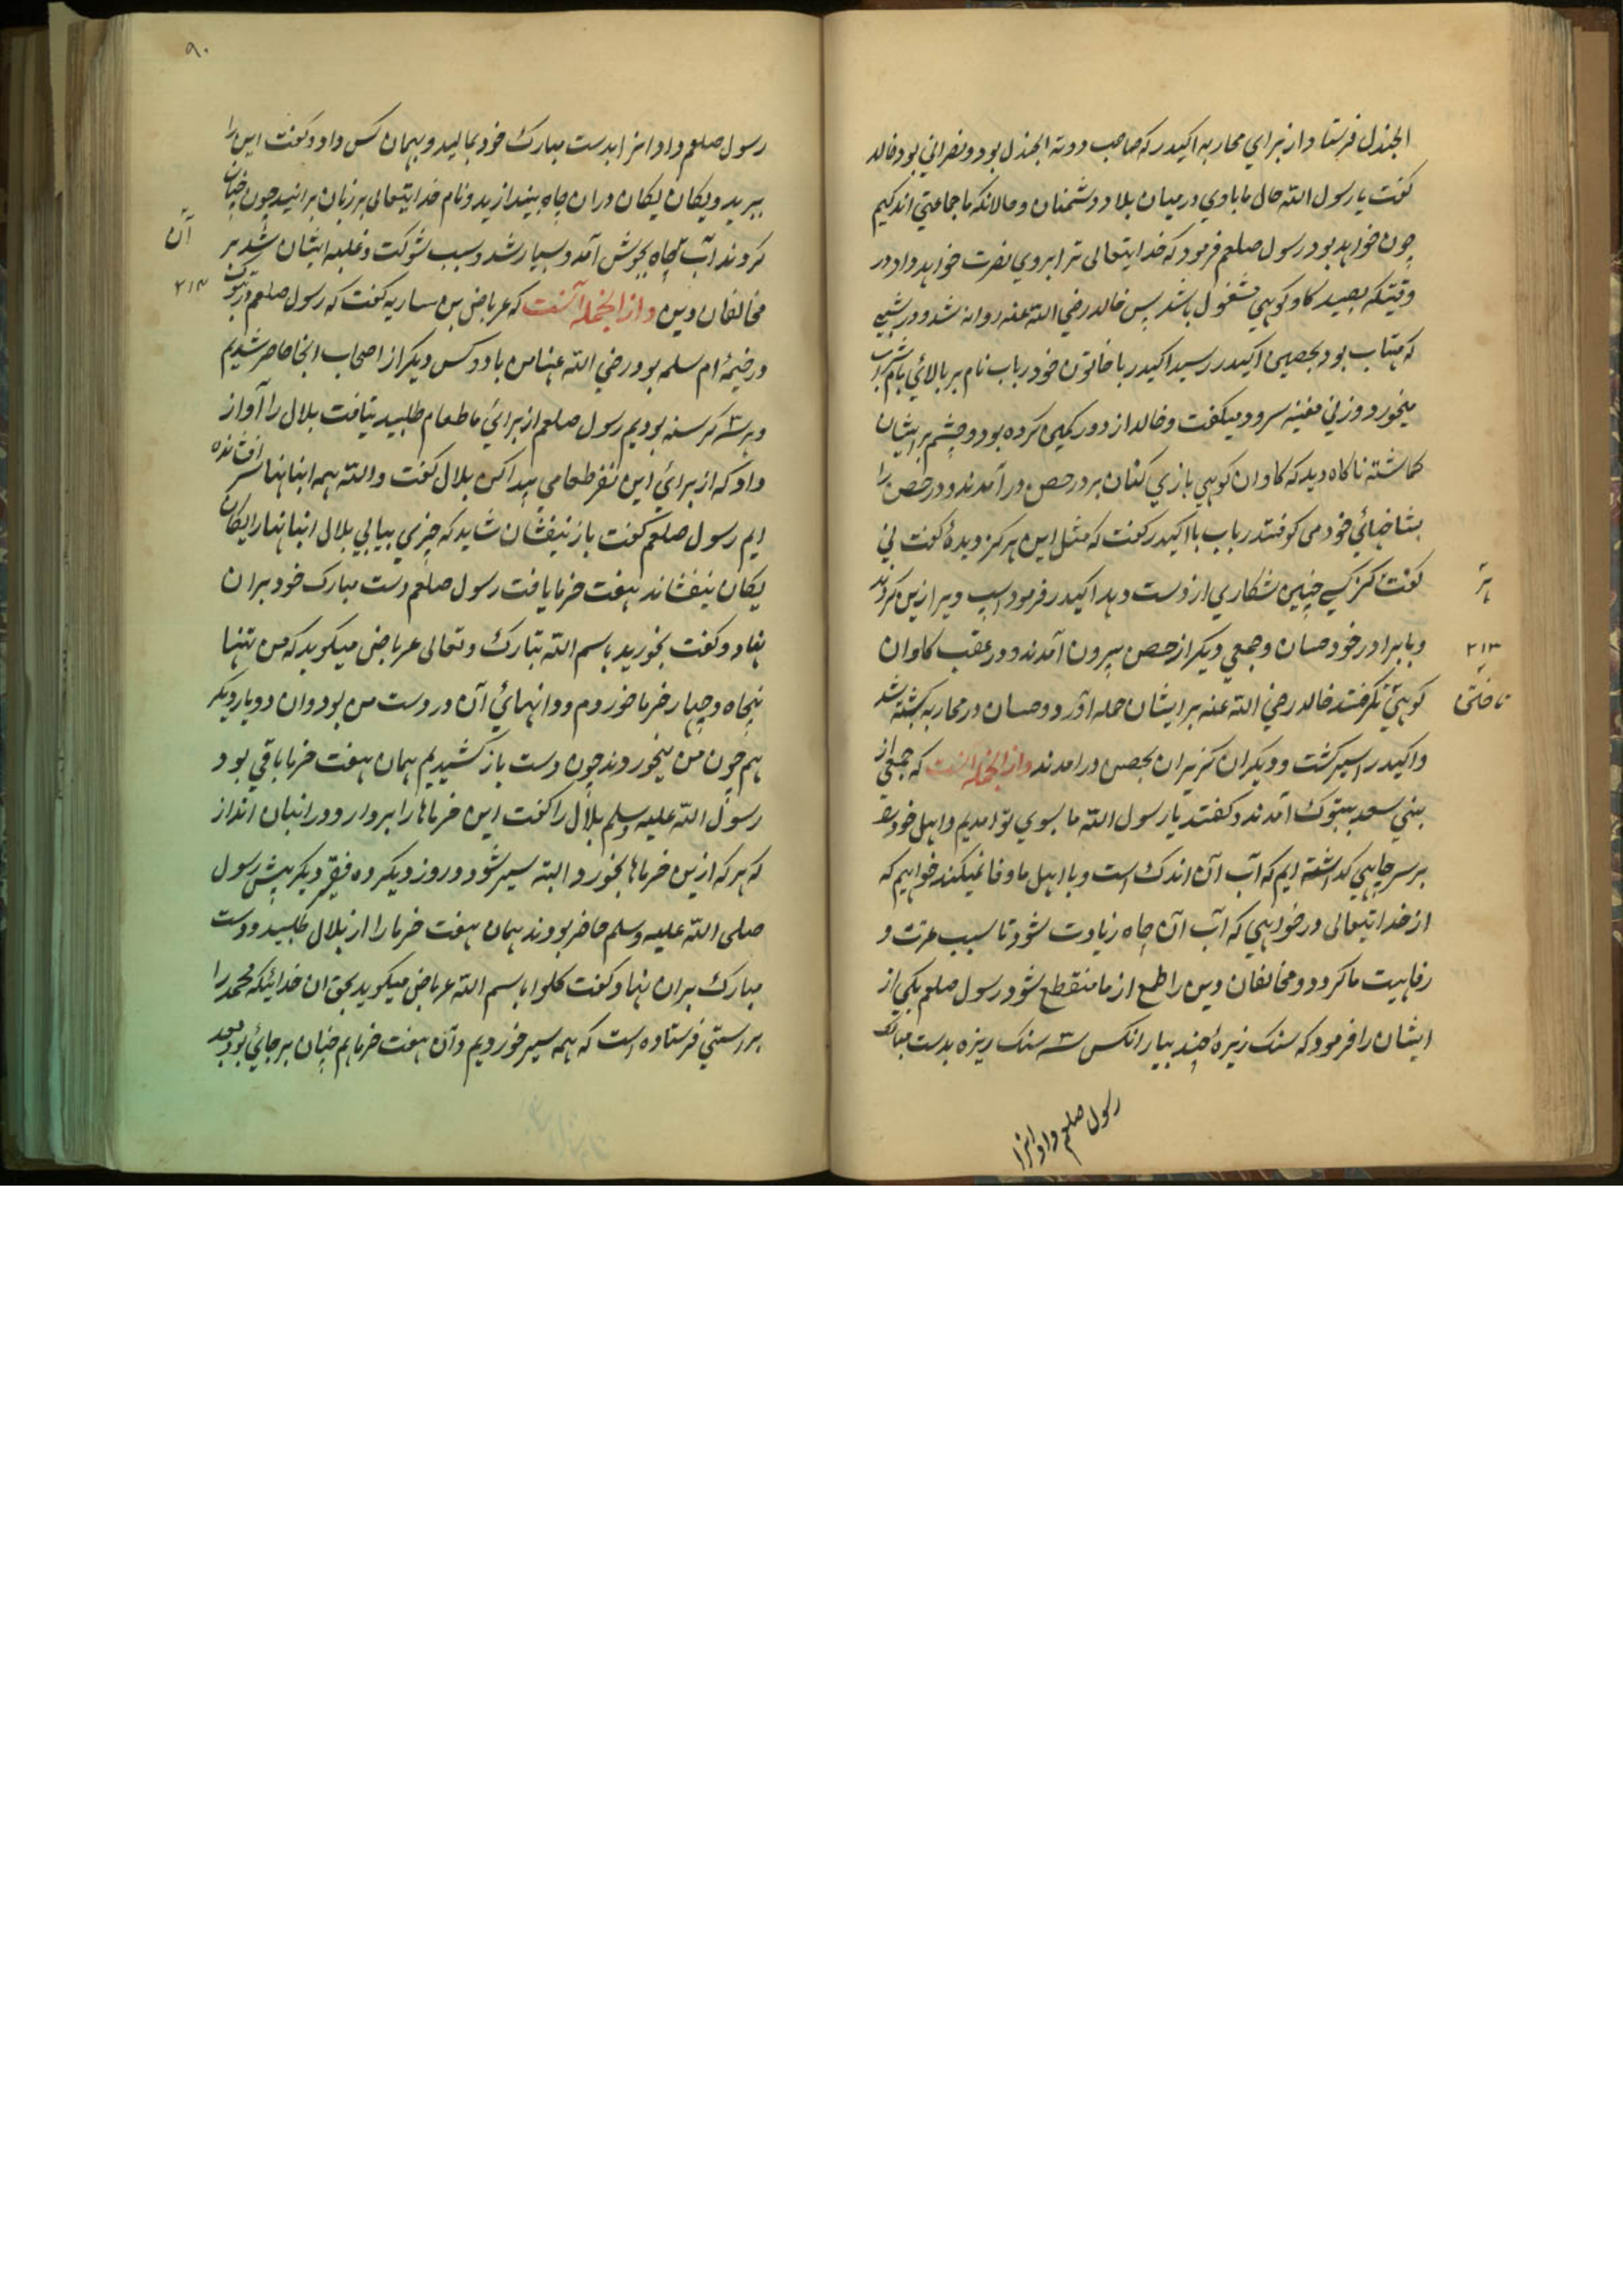 الجندل فرستاد از براي محاربه اكيدر كه صاحب دومة الجندل بود و نصراني بود خالد
كفت يا رسول الله حال ما با وي در ميان بلاد دشمنان و حالانكه ما جماعتي اندكيم
چون خواهد بود رسول صلعم فرمود كه خدايتعالى ترا بروي نصرت خواهد داد در
وقتيكه بصيد كاو كوهي مشغول باشد پس خالد رضي الله عنه روانه شد و در شبي
كه مهتاب بود بحصن اكيدر رسيد اكيدر با خاتون خود رباب نام بر بالائي بام شراب
ميخورد و زني مغنيه سرود ميكفت و خالد از دور كمين كرده بود و چشم بر ايشان
كماشته ناكاه ديد كه كاوان كوهي بازي كنان بر در حصن در آمدند و در حصن را
بشاخهائي خود مي كوفتند رباب با اكيدر كفت كه مثل اين هركز ديدۀ كفت ني
كفت هركز كسي چنين شكاري از دست دهد اكيدر فرمود اسپ ويرا زين كردند
و با برادر خود حسان و جمعي ديكر از حصن بيرون آمدند و در عقب كاوان
۲۱۳
كوهي تاختن كرفتند خالد رضي الله عنه بر ايشان حمله آورد و حسان در محاربه كشته شد
و اكيدر اسير كشت و ديكران كريزان بحصن در امدند و از انجمله انست كه جمعي از
بني سعد بتبوك آمدند و كفتند يا رسول الله ما بسوي تو امديم و اهل خود
بر سر چاهي كذاشته ايم كه آب آن اندك است و با اهل ما وفا نميكند خواهيم كه
از خدايتعالى در خواهي كه آب آن چاه زيادت شود تا سبب عزت و
رفاهيت ما كردد و مخالفان دين را طمع از ما منقطع شود رسول صلعم يكي از
ايشان را فرمود كه سنك ريزۀ چند بيار انكس سه سنك ريزه بدست مبارك
رسول صلعم داد انرا
۹۰
رسول صلعم داد انرا بدست مبارك خود بماليد و بهمان كس داد و كفت اين را
ببريد و يكان يكان در ان چاه بيندازيد و نام خدايتعالى بر زبان برانيد چون چنان
كردند آب آن چاه بجوش آمد و بسيار شد و سبب شوكت و غلبه ايشان شد بر
مخالفان دين و از انجمله آنست كه عرباض بن ساريه كفت كه رسول صلعم در تبوك
۲۱۴
در خيمۀ ام سلمه بود رضي الله عنها من با دو كس ديكر از اصحاب انجا حاضر شديم
و هر سه كرسنه بوديم رسول صلعم از برائي ما طعام طلبيد نيافت بلال را آواز
داد كه از برائي اين نفر طعامي پيدا كن بلال كفت والله همه انبانها را افشانده
ايم رسول صلعم كفت باز بيفشان شايد كه چيزي بيابي بلال انبانها را يكان
يكان بيفشاند هفت خرما يافت رسول صلعم دست مبارك خود بران
نهاد و كفت بخوريد باسم الله تبارك و تعالى عرباض ميكويد كه من تنها
پنجاه و چهار خرما خوردم و دانهائي آن در دست من بود و ان دو يار ديكر
هم چون من ميخوردند چون دست باز كشيديم همان هفت خرما باقي بود
رسول الله عليه وسلم بلال را كفت اين خرماها را بردار و در انبان انداز
كه هر كه ازين خرماها بخورد البته سير شود و روز ديكر ده فقير ديكر پيش رسول
صلى الله عليه وسلم حاضر بودند همان هفت خرما را از بلال طلبيد و دست
مبارك بران نهاد و كفت كلوا باسم الله عرباض ميكويد بحق ان خدائيكه محمد را
براستي فرستاده است كه همه سير خورديم و آن هفت خرما هم چنان بر جائي بود بعد